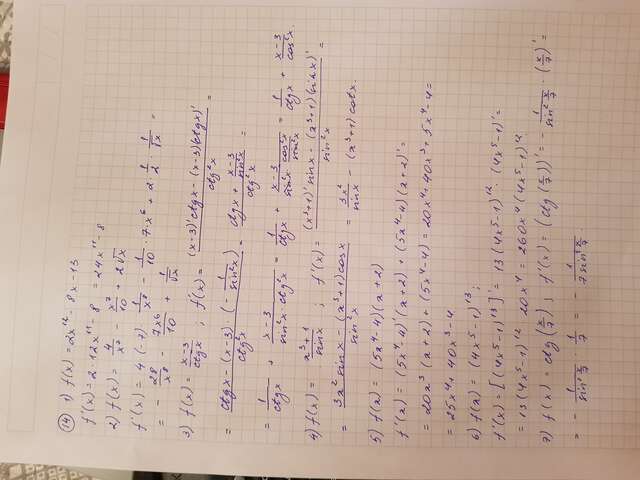 (14) 1) f(x) = 2x¹² - 8x - 13
f'(x) = 2·12x¹¹ - 8 = 24x¹¹ - 8
2) f(x) = 4/x⁷ - x⁷/10 + 2√x
f'(x) = 4·(-7)·1/x⁸ - 1/10·7·x⁶ + 2·1/2·1/√x =
= - 28/x⁸ - 7x⁶/10 + 1/√x
3) f(x) = (x-3)/ctgx ; f'(x) = ((x-3)'ctgx - (x-3)(ctgx)')/ctg²x =
= (ctgx - (x-3)·(-1/sin²x))/ctg²x = (ctgx + (x-3)/sin²x)/ctg²x =
= 1/ctgx + (x-3)/(sin²x·ctg²x) = 1/ctgx + (x-3)/(sin²x cos²x/sin²x) = 1/ctgx + (x-3)/cos²x.
4) f(x) = (x³+1)/sinx ; f'(x) = ((x³+1)'sinx - (x³+1)(sinx)')/sin²x =
= (3x² sinx - (x³+1)cosx)/sin²x = 3x²/sinx - (x³+1)cotx.
5) f(x) = (5x⁴-4)(x+2)
f'(x) = (5x⁴-4)'(x+2) + (5x⁴-4)(x+2)' =
= 20x³(x+2) + (5x⁴-4) = 20x⁴+40x³+5x⁴-4 =
= 25x⁴ + 40x³ - 4
6) f(x) = (4x⁵-1)¹³ ;
f'(x) = [(4x⁵-1)¹³]' = 13(4x⁵-1)¹²·(4x⁵-1)' =
= 13(4x⁵-1)¹² 20x⁴ = 260x⁴(4x⁵-1)¹²
7) f(x) = ctg(x/7) ; f'(x) = (ctg(x/7))' = - 1/sin² x/7 · (x/7)' =
= - 1/sin² x/7 · 1/7 = - 1/7sin² x/7.